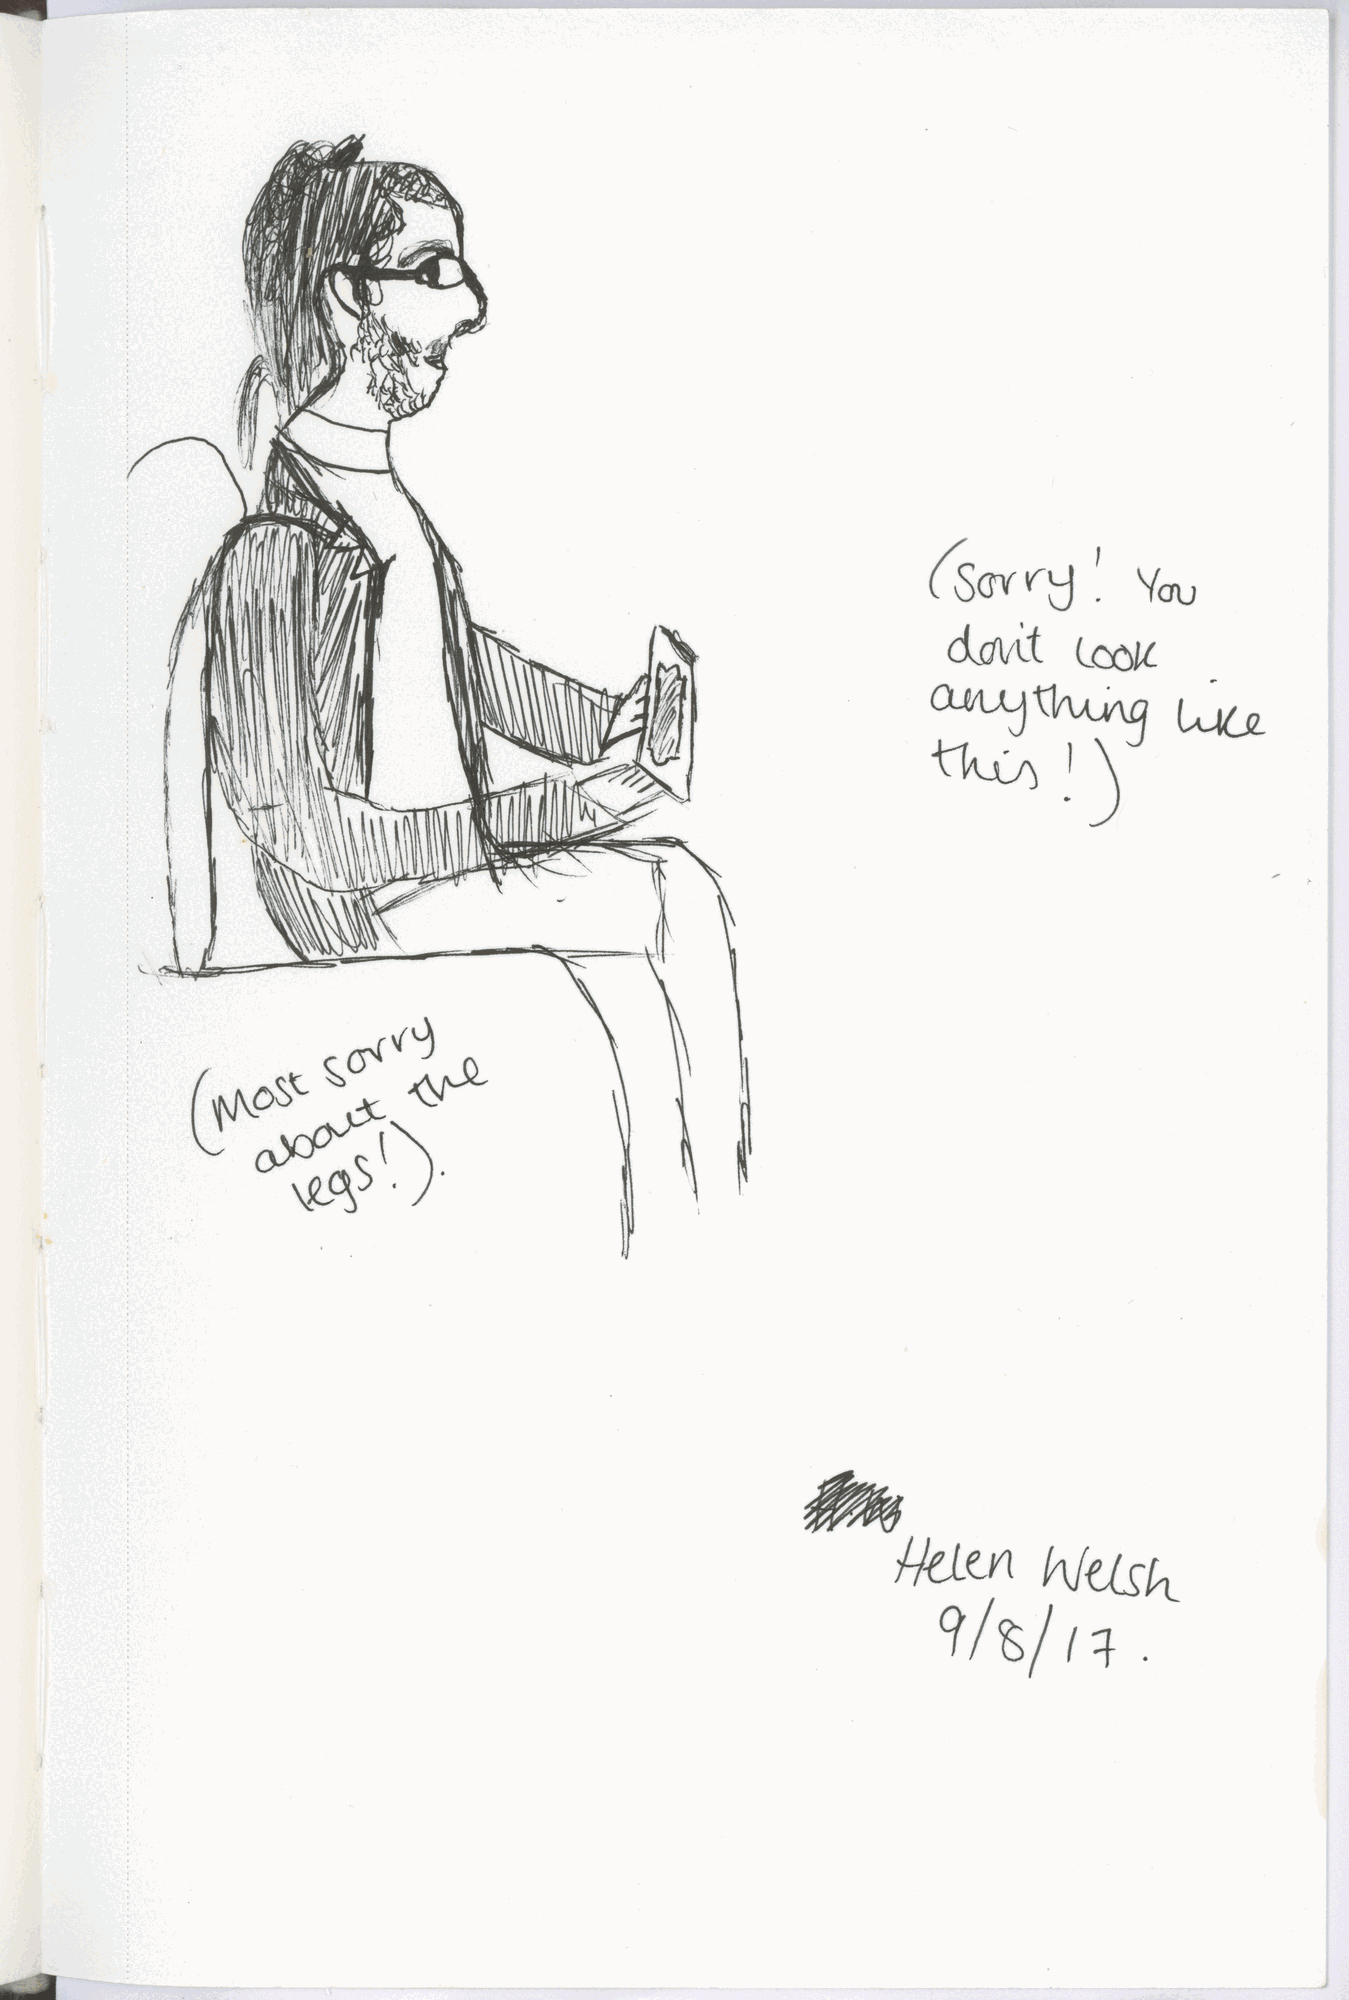 (Sorry! You
don't look
anything like
this!)
(Most sorry
about the
legs!).
Helen Welsh
9/8/17.